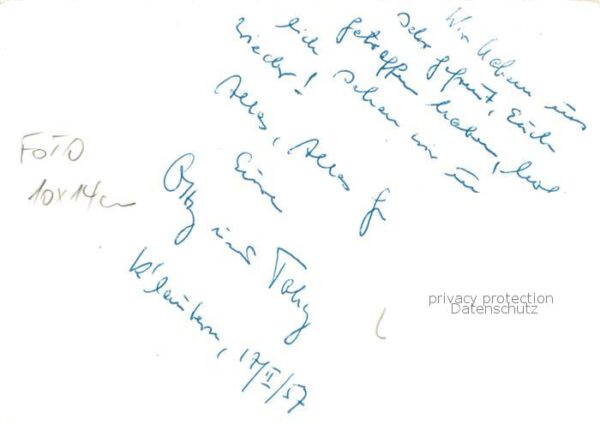 Wir haben uns
sehr gefreut, Euch
getroffen haben,
sehen wir
wieder!
Alles, Alles
Eure
und Toby
K'lautern, 17/II/57
FOTO
10x14cm
privacy protection
Datenschutz